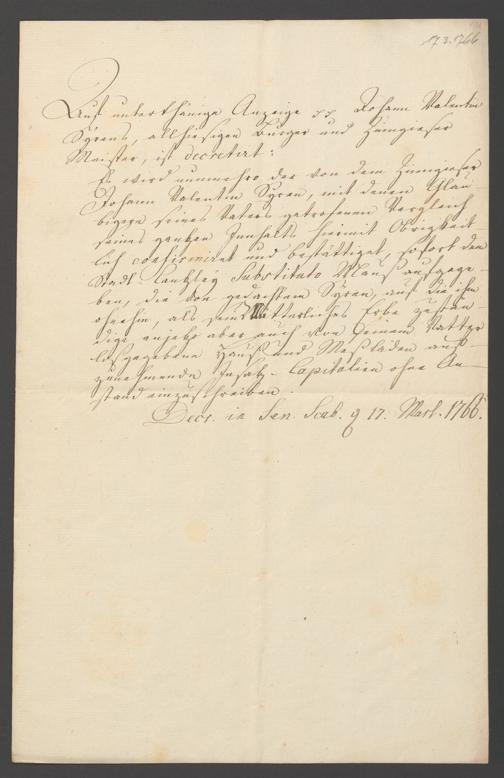 17.3.1766
Auf unterthänige Anzeige pp Johann Valentin
Syrens, allhiesigen Burger und Zinngießer
Meister, ist decretirt:
Es wird nunmehro der von dem Zinngießer
Johann Valentin Syren, mit denen Glau-
bigern seines Vaters getroffene Vergleich
seines gantzen Innhalts hiermit Obrigkeit
lich confirmiret und bestättiget, sofort dem
Stadt-Cantzley Substituto aufgege-
ben, die von gedachtem Syren, auf die ihm
ohnehin, als sein Mütterliches Erbe zustän-
dige anjetzo aber auch von seinem Vatter
ausgegebene Hauß und Meßläden auf-
zunehmende Insatz-Capitalien ohne An-
stand einzuschreiben.
Decr. in Sen. Scab. d 17. Mart. 1766.